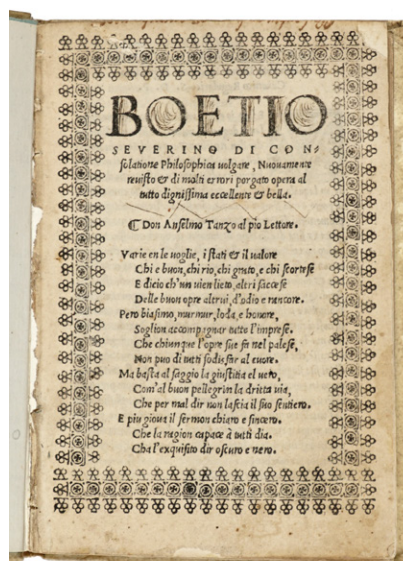 BOETIO
SEVERINO DI CON=
solatione Philosophica volgare, Nuouamente
reuisto & di molti errori porgato opera al
tutto dignissima eccellente & bella.
¶ Don Anselmo Tanzo al pio Lettore.
Varie en le uoglie, i stati & il ualore
Chi e buon, chi rio, chi grato, e chi scortese
E dicio ch'un uien lieto, altri saccese
Delle buon opre altrui, d'odio e rancore.
Pero biasimo, murmur, loda, e honore,
Soglion accompagnar tutto l'imprese.
Che chiunque l'opre sue fa nel palese,
Non puo di tutti sodisfar al cuore.
Ma basta al saggio la giustitia el uero,
Com'al buon pellegrin la dritta uia,
Che per mal dir non lascia il suo sentiero.
E piu gioua il sermon chiaro e sincero.
Che la ragion capace à tutti dia.
Cha l'exquisito dir oscuro e nero.